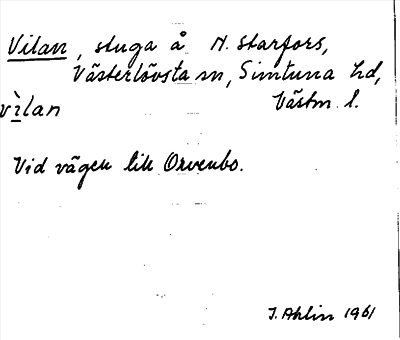 Vilan, stuga å N. Starfors,
Västerlövsta sn, Simtuna hd,
vìlan Västm. l.
Vid vägen till Orvenbo.
I. Ahlin 1961